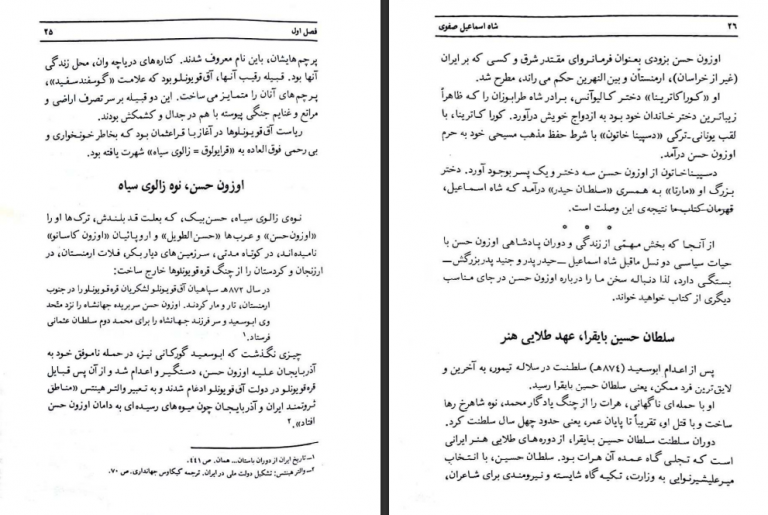 فصل اول
۲۵
پرچم‌هایشان، باین نام معروف شدند. کناره‌های دریاچه وان، محل زندگی
آنها بود. قبیله رقیب آنها، آق‌قویونلو بود که علامت «گوسفند سفید»،
پرچم‌های آنان را متمایز می‌ساخت. این دو قبیله بر سر تصرف اراضی و
مراتع و غنایم جنگی پیوسته با هم در جدال و کشمکش بودند.
ریاست آق‌قویونلوها در آغاز با قراعثمان بود که بخاطر خونخواری و
بی‌رحمی فوق‌العاده به «قرایولوق = زالوی سیاه» شهرت یافته بود.
اوزون حسن، نوه زالوی سیاه
نوه‌ی زالوی سیاه، حسن‌بیک، که بعلت قد بلندش، ترک‌ها او را
«اوزون‌حسن» و عرب‌ها «حسن‌الطویل» و اروپائیان «اوزون کاسانو»
نامیده‌اند، در کوتاه مدتی، سرزمین‌های دیاربکر، فلات ارمنستان، در
ارزنجان و کردستان را از چنگ قره‌قویونلوها خارج ساخت:
در سال ۸۷۲هـ سپاهیان آق‌قویونلو لشکریان قره‌قویونلو را در جنوب
ارمنستان، تار و مار کردند. اوزون حسن سر بریده جهانشاه را نزد متحد
وی ابوسعید و سر فرزند جهانشاه را برای محمد دوم سلطان عثمانی
فرستاد.۱
چیزی نگذشت که ابوسعید گورکانی نیز، در حمله ناموفق خود به
آذربایجان علیه اوزون حسن، دستگیر و اعدام شد و از آن پس قبایل
قره‌قویونلو در دولت آق‌قویونلو ادغام شدند و به تعبیر والتر هینتس «مناطق
ثروتمند ایران و آذربایجان چون میوه‌های رسیده‌ای به دامان اوزون حسن
افتاد».۲
۱ـ تاریخ ایران از دوران باستان... همان. ص ۴۴۱.
۲ـ والتر هینتس: تشکیل دولت ملی در ایران. ترجمه کیکاوس جهانداری. ص ۷۰.
۲۶
شاه اسماعیل صفوی
اوزون حسن بزودی بعنوان فرمانروای مقتدر شرق و کسی که بر ایران
(غیر از خراسان)، ارمنستان و بین النهرین حکم می راند، مطرح شد.
او «کوراکاترینا» دختر کالیوآنس، برادر شاه طرابوزان را که ظاهراً
زیباترین دختر خاندان خود بود به ازدواج خویش درآورد. کورا کاترینا، با
لقب یونانی‌ـ‌ترکی «دسپینا خاتون» با شرط حفظ مذهب مسیحی خود به حرم
اوزون حسن درآمد.
دسپیناخاتون از اوزون حسن سه دختر و یک پسر بوجود آورد. دختر
بزرگ او «مارتا» به همسری «سلطان حیدر» درآمد که شاه اسماعیل،
قهرمان کتاب ما نتیجه‌ی این وصلت است.
* * *
از آنجا که بخش مهمی از زندگی و دوران پادشاهی اوزون حسن با
حیات سیاسی دو نسل ماقبل شاه اسماعیل ــ حیدر پدر و جنید پدر بزرگش ــ
بستگی دارد، لذا دنباله سخن ما را درباره اوزون حسن در جای مناسب
دیگری از کتاب خواهید خواند.
سلطان حسین بایقرا، عهد طلایی هنر
پس از اعدام ابوسعید (۸۷۴هـ) سلطنت در سلاله تیمور، به آخرین و
لایق‌ترین فرد ممکن، یعنی سلطان حسین بایقرا رسید.
او با حمله‌ای ناگهانی، هرات را از چنگ یادگار محمد، نوه شاهرخ رها
ساخت و با قتل او، تقریباً تا پایان عمر، یعنی حدود چهل سال سلطنت کرد.
دوران سلطنت سلطان حسین بایقرا، از دوره‌های طلایی هنر ایرانی
است که تجلی گاه عمده آن هرات بود. سلطان حسین، با انتخاب
میرعلیشیرنوایی به وزارت، تکیه گاه شایسته و نیرومندی برای شاعران،